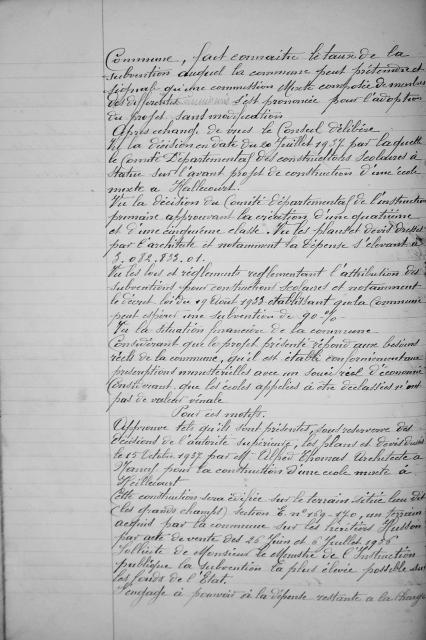 Commune, fait connaitre le taux de la
subvention auquel la commune peut prétendre et
signale qu'une commission Mixte composée de membres
des différentes s'est prononcée pour l'adoption
du projet sans modification
Après échange de vues le Conseil délibère
Vu la décision en date du 20 Juillet 1937 par laquelle
le Comité Départemental des constructions scolaires a
statué sur l'avant projet de construction d'une école
mixte à Heillecourt.
Vu la décision du Comité départemental de l'instruction
primaire approuvant la création d'une quatrième
et d'une cinquième classe. Vu les plans et devis dressés
par l'architecte et notamment la dépense s'élevant à
3.032.833.01.
Vu les lois et règlements reglementant l'attribution des
subventions pour constructions scolaires et notamment
le décret loi du 19 Août 1933 établissant que la Commune
peut espérer une subvention de 90 %
Vu la situation financière de la commune
Considérant que le projet présenté répond aux besoins
réels de la commune, qu'il est établi conformément aux
prescriptions ministérielles avec un souci réel d'économie
Considérant que les écoles appelées à être déclassées n'ont
pas de valeur vénale
Pour ces motifs.
Approuve tels qu'ils sont présentés, sous réserve des
décisions de l'autorité supérieure, les plans et devis dressés
le 15 Octobre 1937 par Mr Alfred Thomas Architecte à
Nancy pour la construction d'une école mixte à
Heillecourt
Cette construction sera édifiée sur le terrain situé lieu dit
(les grands champs) section E. n° 169-170, un terrain
acquis par la commune sur les héritiers Husson
par acte de vente des 26 Juin et 6 Juillet 1936
Sollicite de Monsieur le Ministre de l'Instruction
publique la subvention la plus élevée possible sur
les fonds de l'Etat.
S'engage à pourvoir à la dépense restante à la charge